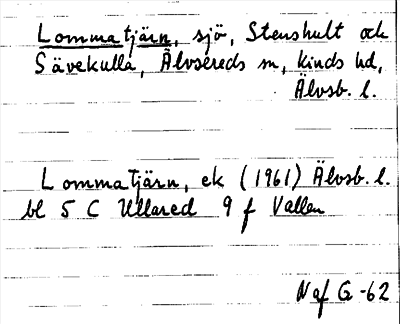 Lommatjärn, sjö, Stenshult och
Sävekulla, Älvsereds sn, Kinds hd,
Älvsb. l.
Lommatjärn, ek (1961) Älvsb. l.
bl 5 C Ullared 9 f Vallen
Naf G-62